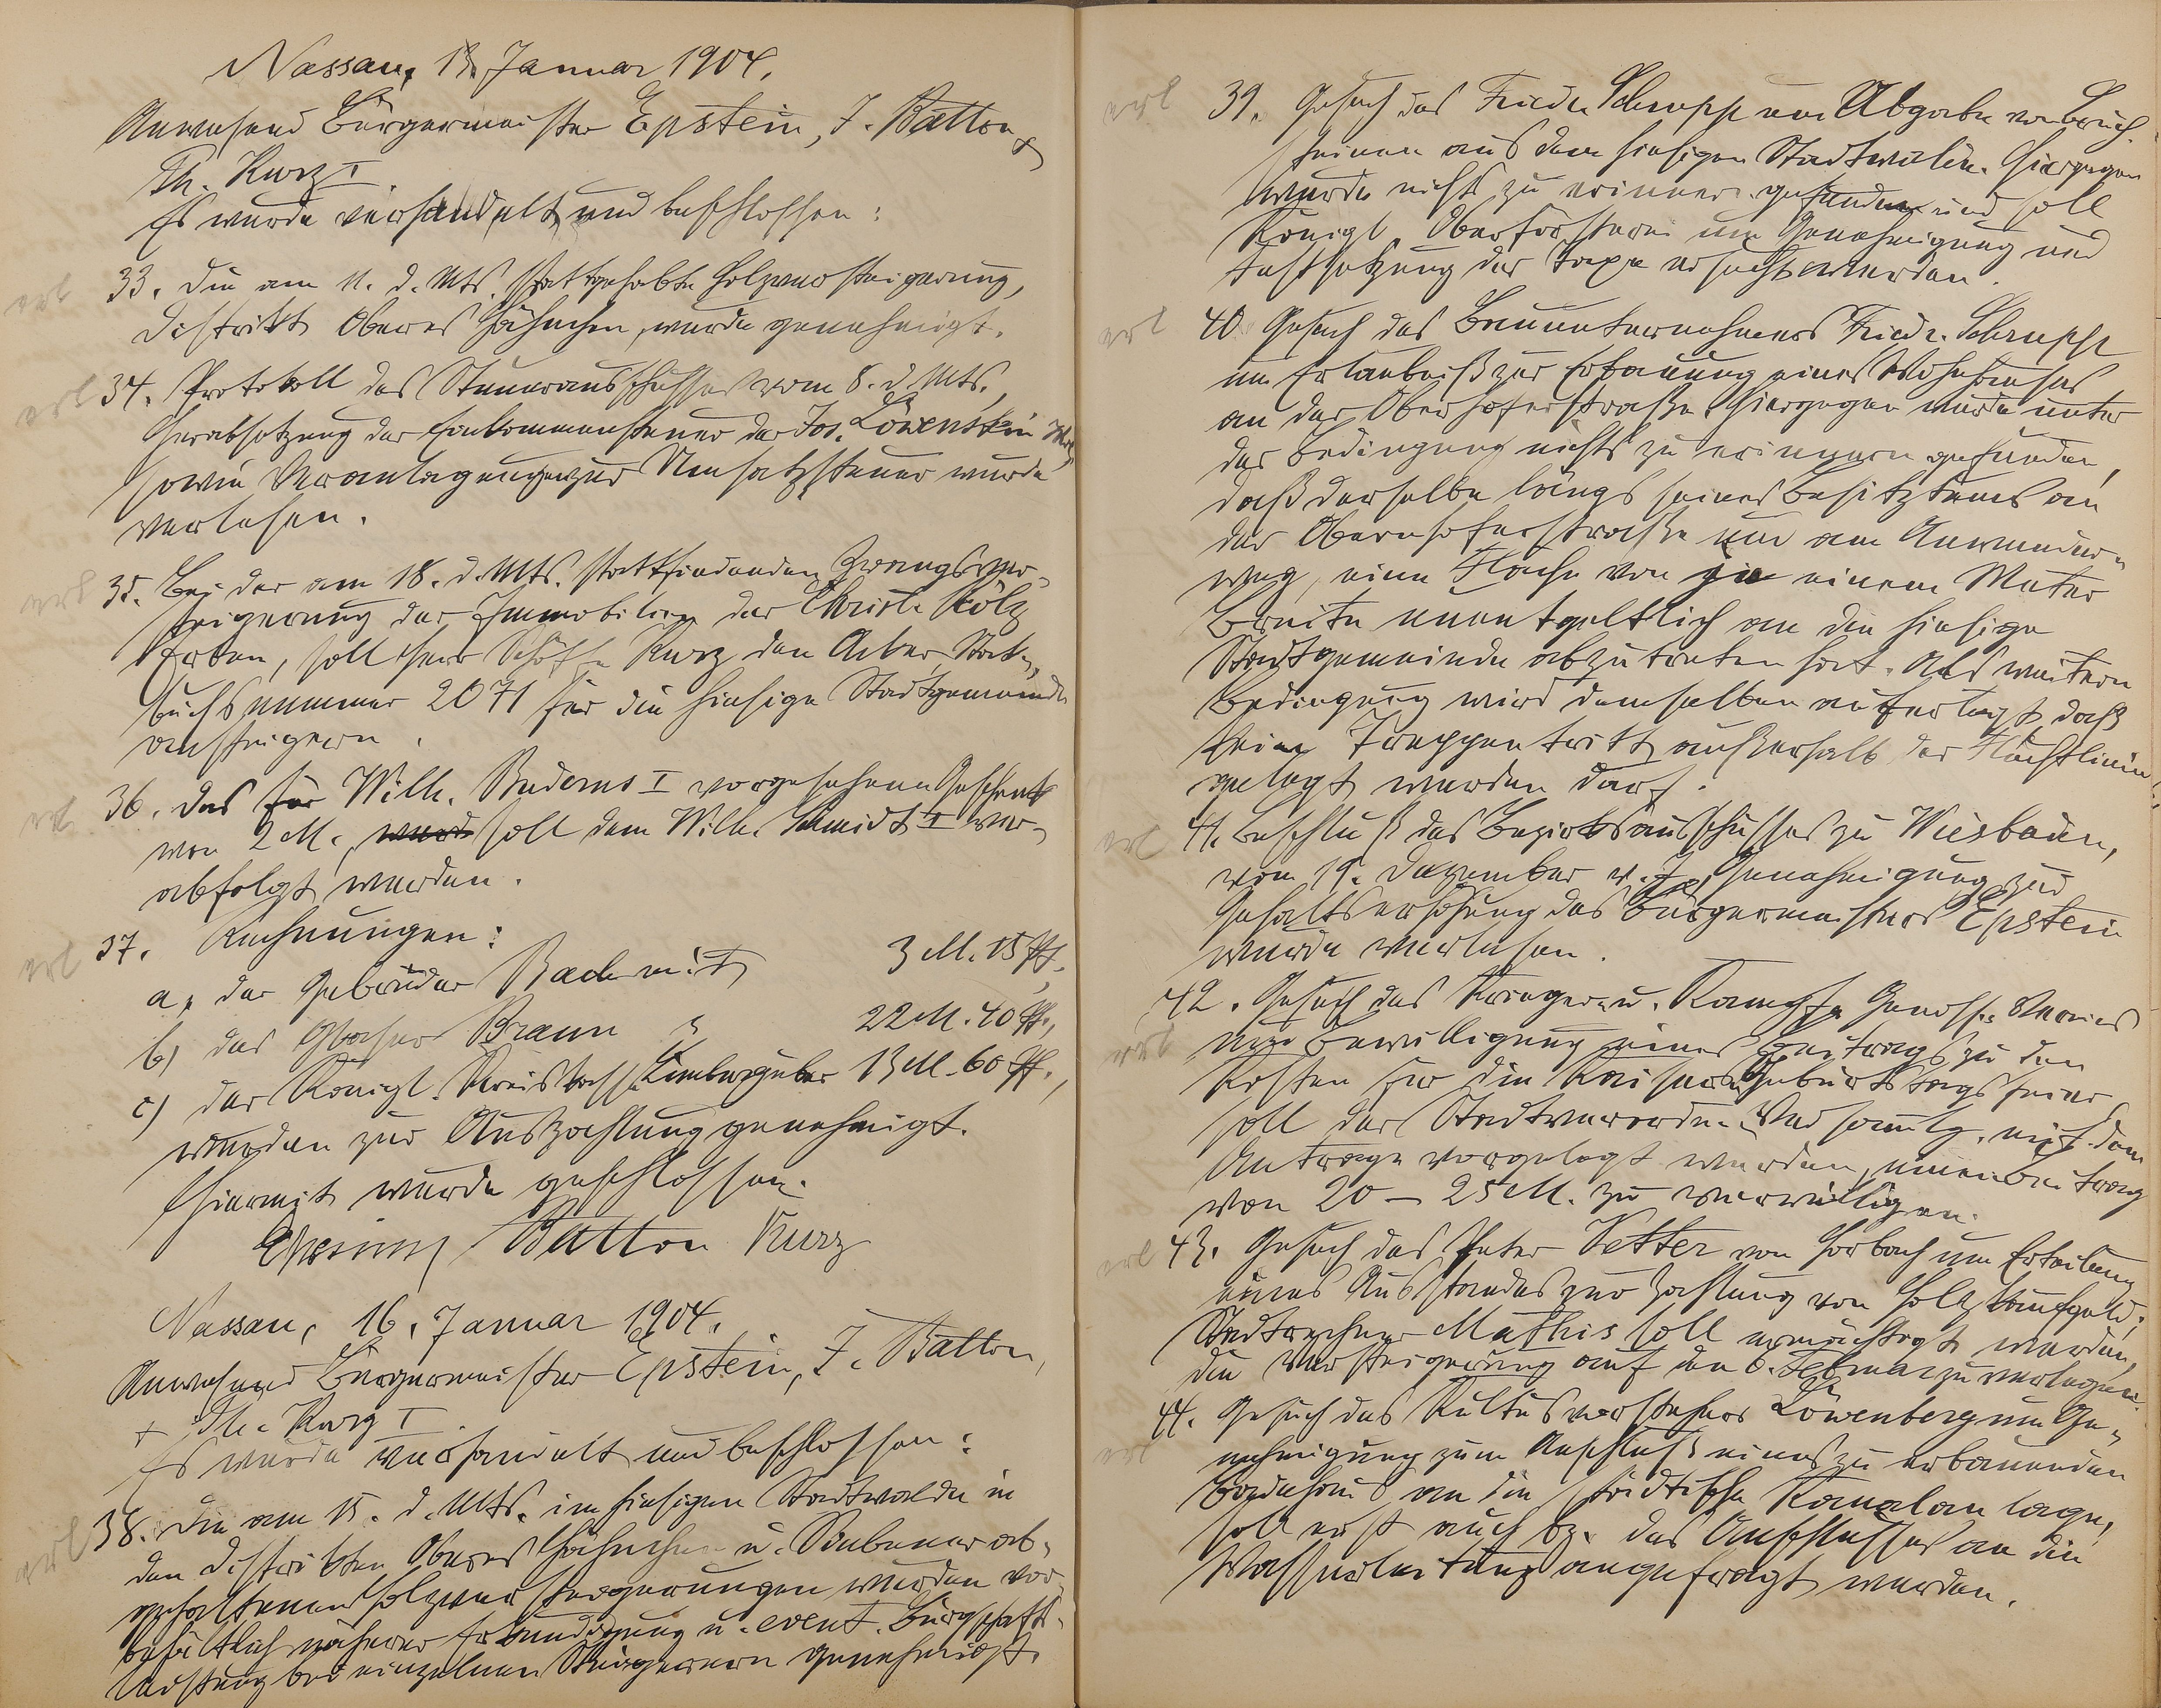 Nassau, 13. Januar 1904.
Anwesend Bürgermeister Epstein, J. Batton,
Th. Kurz I
Es wurde verhandelt und beschlossen:
erl 33. Die am 11. d. Mts. stattgehabte Holzversteigerung,
Distrikt Oberes Hähnchen, wurde genehmigt.
erl 34. Protokoll des Steuerausschusses vom 8. d. Mts.,
Herabsetzung der Einkommensteuer der Jos. Löwenstein
sowie Veranlagungen zur Umsatzsteuer wurde
verlesen.
erl 35. Bei der am 18. d. Mts. stattfindenden Zwangsver-
steigerung der Immobilien der Christ. Stölz
Erben, soll Herr Schöffe Kurz den Acker, Stock-
buchsnummer 2071 für die hiesige Stadtgemeinde
ansteigern.
erl 36. Das für Wilh. Buderus I vorgesehene Geschenk
von 2 M. wurde soll dem Wilh. Schmidt I ver-
abfolgt werden.
erl 37. Rechnungen:
a, der Gebrüder Bach mit 3 M. 15 Pf.,
b) des Glaser Braun " 22 M. 40 Pf.,
c) der Königl. Kreiskasse Limburg über 13 M. 60 Pf.,
wurden zur Auszahlung genehmigt.
Hiermit wurde geschlossen.
Batton Kurz
Nassau, 16. Januar 1904.
Anwesend Bürgermeister Epstein, J. Batton,
+ Th. Kurz I
Es wurde verhandelt und beschlossen:
erl 38. Die am 15. d. Mts. im hiesigen Stadtwalde in
den Distrikten Oberes Hähnchen u. ab-
gehaltenen Holzversteigerungen wurden vor-
behältlich näherer Erkundigung u. event. Bürgschafts-
leistung bei einzelnen Steigerern genehmigt.
erl 39. Gesuch des Friedr. Schrupp um Abgabe von Bruch-
steinen aus dem hiesigen Stadtwalde. Hiergegen
wurde nichts zu erinnern gefunden und soll
Königl. Oberförsterei um Genehmigung und
Festsetzung der Taxe ersucht werden.
erl 40. Gesuch des Bauunternehmers Friedr. Schrupp
um Erlaubniß zur Erbauung eines Wohnhauses
an der Oberhoferstraße. Hiergegen wurde unter
der Bedingung nichts zu erinnern gefunden,
daß derselbe längs seines Besitztums an
der Obernhoferstraße und am
weg, eine Fläche von je einem Meter
Breite unentgeltlich an die hiesige
Stadtgemeinde abzutreten hat. Als weitere
Bedingung wird demselben auferlegt, daß
kein Treppentritt außerhalb der Fluchtlinie
gelegt werden darf.
erl 41. Beschluß des Bezirksausschusses zu Wiesbaden,
vom 19. Dezember v. J., Genehmigung zur
Gehaltserhöhung des Bürgermeisters Epstein
wurde verlesen.
erl 42. Gesuch des Krieger- u. Kampfgenoss. Vereins
um Bewilligung eines Beitrags zu den
Kosten für die Kaisers Geburtstagsfeier
soll der Stadtverordn. Versammlg. mit dem
Antrage vorgelegt werden, einen Beitrag
von 20 - 25 M. zu verwilligen.
erl 43. Gesuch des Peter Vetter von Horbach um Erteilung
eines Ausstandes zur Zahlung von Holzkaufgeld;
Stadtrechner Mathis soll ermächtigt werden,
die Versteigerung auf den 6. Februar zu verlegen.
erl 44. Gesuch des Kultusvorstehers Löwenberg um Ge-
nehmigung zum Anschluß eines zu erbauenden
Badehaus an die städtische Kanalanlage,
soll erst auch bz. des Anschlusses an die
Wasserleitung angefragt werden.